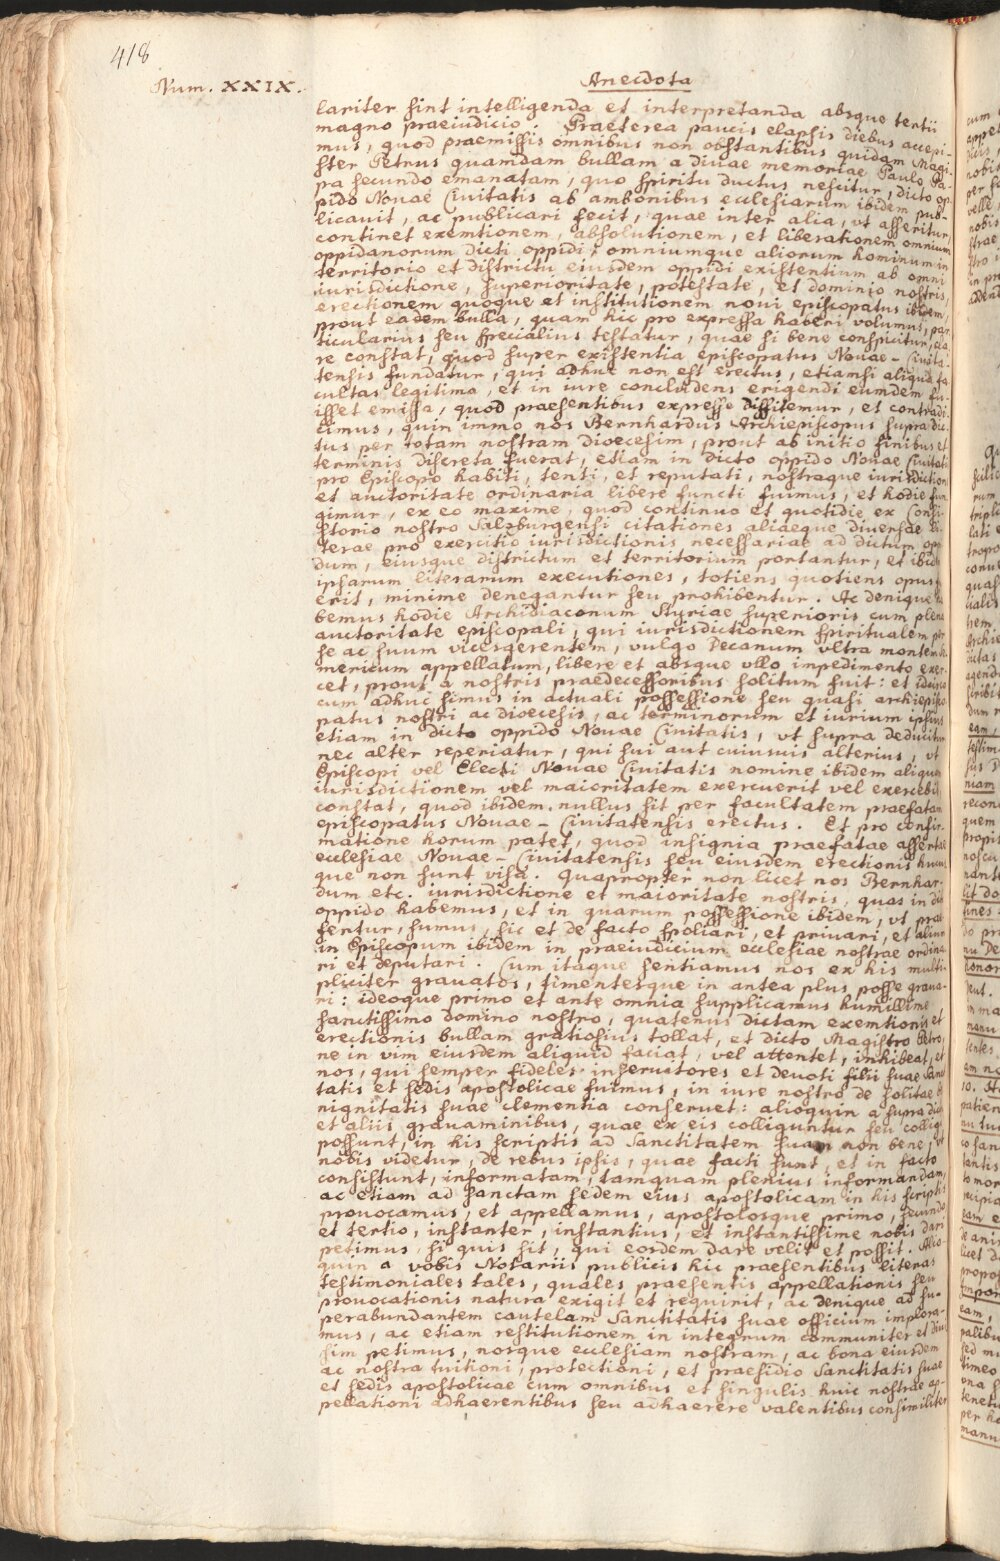 418
Num. XXIX.
Anecdota
lariter sint intelligenda et interpretanda absque tertii
magno praeiudicio. Praeterea paucis elapsis diebus accepi-
mus, quod praemissis omnibus non obstantibus quidam Magi-
ster Petrus quamdam bullam a divae memoriae Paulo Pa-
pa secundo emanatam, quo spiritu ductus nescitur, dicto op-
pido Novae Civitatis ab ambonibus ecclesiarum ibidem pub-
licavit, ac publicari fecit, quae inter alia, vt asseritur,
continet exemtionem, absolutionem, et liberationem omnium
oppidanorum dicti oppidi, omniumque aliorum hominum in
territorio et districtu eiusdem oppidi existentium ab omni
iurisdictione, superioritate, potestate, et dominio nostris,
erectionem quoque et institutionem novi episcopatus ibidem,
prout eadem bulla, quam hic pro expressa haberi volumus, par-
ticularius seu specialius testatur, quae si bene conspicitur, cla-
re constat, quod super existentia episcopatus Novae-Civita-
tensis fundatur, qui adhuc non est erectus, etiamsi aliqua fa-
cultas legitima, et in iure concludens erigendi eumdem fu-
isset emissa, quod praesentibus expresse diffitemur, et contradi-
cimus, quin immo nos Bernhardus Archiepiscopus supra dic-
tus per totam nostram dioecesim, prout ab initio finibus et
terminis discreta fuerat, etiam in dicto oppido Novae Civitatis
pro Episcopo habiti, tenti, et reputati, nostraque iurisdiction
et auctoritate ordinaria libere functi fuimus, et hodie fun
gimur, ex eo maxime, quod continuo et quotidie ex Consi-
storio nostro Salzburgensi citationes aliaeque diversae li-
terae pro exercitio iurisdictionis necessariae ad dictum op
dum, eiusque districtum et territorium portantur, et ibid
ipsarum literarum executiones, totiens quotiens opus
erit, minime denegantur seu prohibentur. Ac denique ha
bemus hodie Archidiaconum Styriae superioris cum plena
auctoritate episcopali, qui iurisdictionem spiritualem per
se ac suum vicesgerentem, vulgo Decanum vltra montem Se
mericum appellatum, libere et absque vllo inpedimento exer
cet, prout a nostris praedecessoribus solitum fuit: et idcirco
cum adhuc simus in actuali possessione seu quasi archiepisco
patus nostri ac dioecesis, ac terminorum et iurium ipsius
etiam in dicto oppido Novae Civitatis, vt supra deducitur
nec alter reperiatur, qui sui aut cuiusuis alterius, vt
Episcopi vel Electi Novae Civitatis nomine ibidem aliquam
iurisdictionem vel maioritatem exercuerit vel exercebit
constat, quod ibidem nullus sit per facultatem praefatam
episcopatus Novae-Civitatensis erectus. Et pro confir-
matione horum patet, quod insignia praefatae assertae
ecclesiae Novae-Civitatensis seu eiusdem erectionis hucus
que non sunt visa. Quapropter non licet nos Bernhar-
dum etc. iurisdictione et maioritate nostris, quas in dic
oppido habemus, et in quarum possessione ibidem, vt prae
fertur, sumus, sic et de facto spoliari, et privari, et alium
in Episcopum ibidem in praeiudicium ecclesiae nostrae ordina
ri et deputari. Cum itaque sentiamus nos ex his multi-
pliciter gravatos, timentesque in antea plus posse grava-
ri: ideoque primo et ante omnia supplicamus humillime
sanctissimo domino nostro, quatenus dictam exemtionis et
erectionis bullam gratiosius tollat, et dicto Magistro Petro,
ne in vim eiusdem aliquid faciat, vel attentet, inhibeat, et
nos, qui semper fideles inservitores et devoti filii suae Sanc
tatis et sedis apostolicae fuimus, in iure nostro de solitae be
nignitatis suae clementia conservet: alioquin a supra dict
et aliis gravaminibus, quae ex eis colliguntur seu colligi
possunt, in his scriptis ad Sanctitatem suam non bene, vt
nobis videtur, de rebus ipsis, quae facti sunt, et in facto
consistunt, informatam, tamquam plenius informandam,
ac etiam ad sanctam sedem eius apostolicam in his scriptis
provocamus, et appellamus, apostolosque primo, secundo
et tertio, instanter, instantius, et instantissime nobis dari
petimus, si quis sit, qui eosdem dare velit et possit. Alio-
quin a vobis Notariis publicis hic praesentibus literas
testimoniales tales, quales praesentis appellationis seu
provocationis natura exigit et requirit, ac denique ad su-
perabundantem cautelam Sanctitatis suae officium implora-
mus, ac etiam restitutionem in integrum communiter et divi
sim petimus, nosque ecclesiam nostram, ac bona eiusdem
ac nostra tuitioni, protectioni, et praesidio Sanctitatis suae
et sedis apostolicae cum omnibus et singulis huic nostrae ap-
pellationi adhaerentibus seu adhaerere valentibus consimiliter